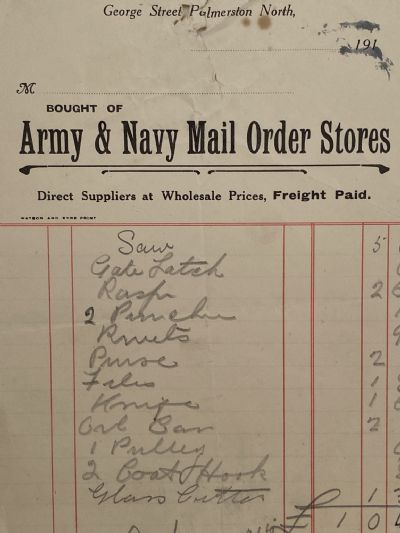 George Street Palmerston North,
191
M
BOUGHT OF
Army & Navy Mail Order Stores
Direct Suppliers at Wholesale Prices, Freight Paid.
WATSON AND EYRE PRINT
Saw 5
Gate Latch
Rasp 2
2 Punches
Rivets
Purse 2
Files 1
Knife 1
Oil Can 2
1 Pulley
2 Coat Hook
Glass Cutter 1 3
£ 1 0